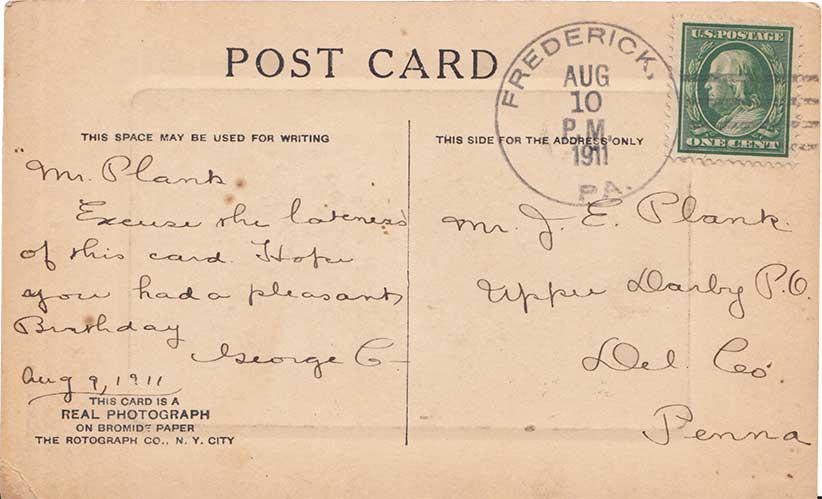 POST CARD
THIS SPACE MAY BE USED FOR WRITING
"Mr. Plank
Excuse the lateness
of this card. Hope
you had a pleasant
Birthday
George C-
Aug 9, 1911
THIS CARD IS A
REAL PHOTOGRAPH
ON BROMIDE PAPER
THE ROTOGRAPH CO., N. Y. CITY
FREDERICK,
AUG
10
P.M.
1911
PA.
U.S. POSTAGE
ONE CENT
THIS SIDE FOR THE ADDRESS ONLY
Mr. J. E. Plank.
Upper Darby P.O.
Del. Co.
Penna